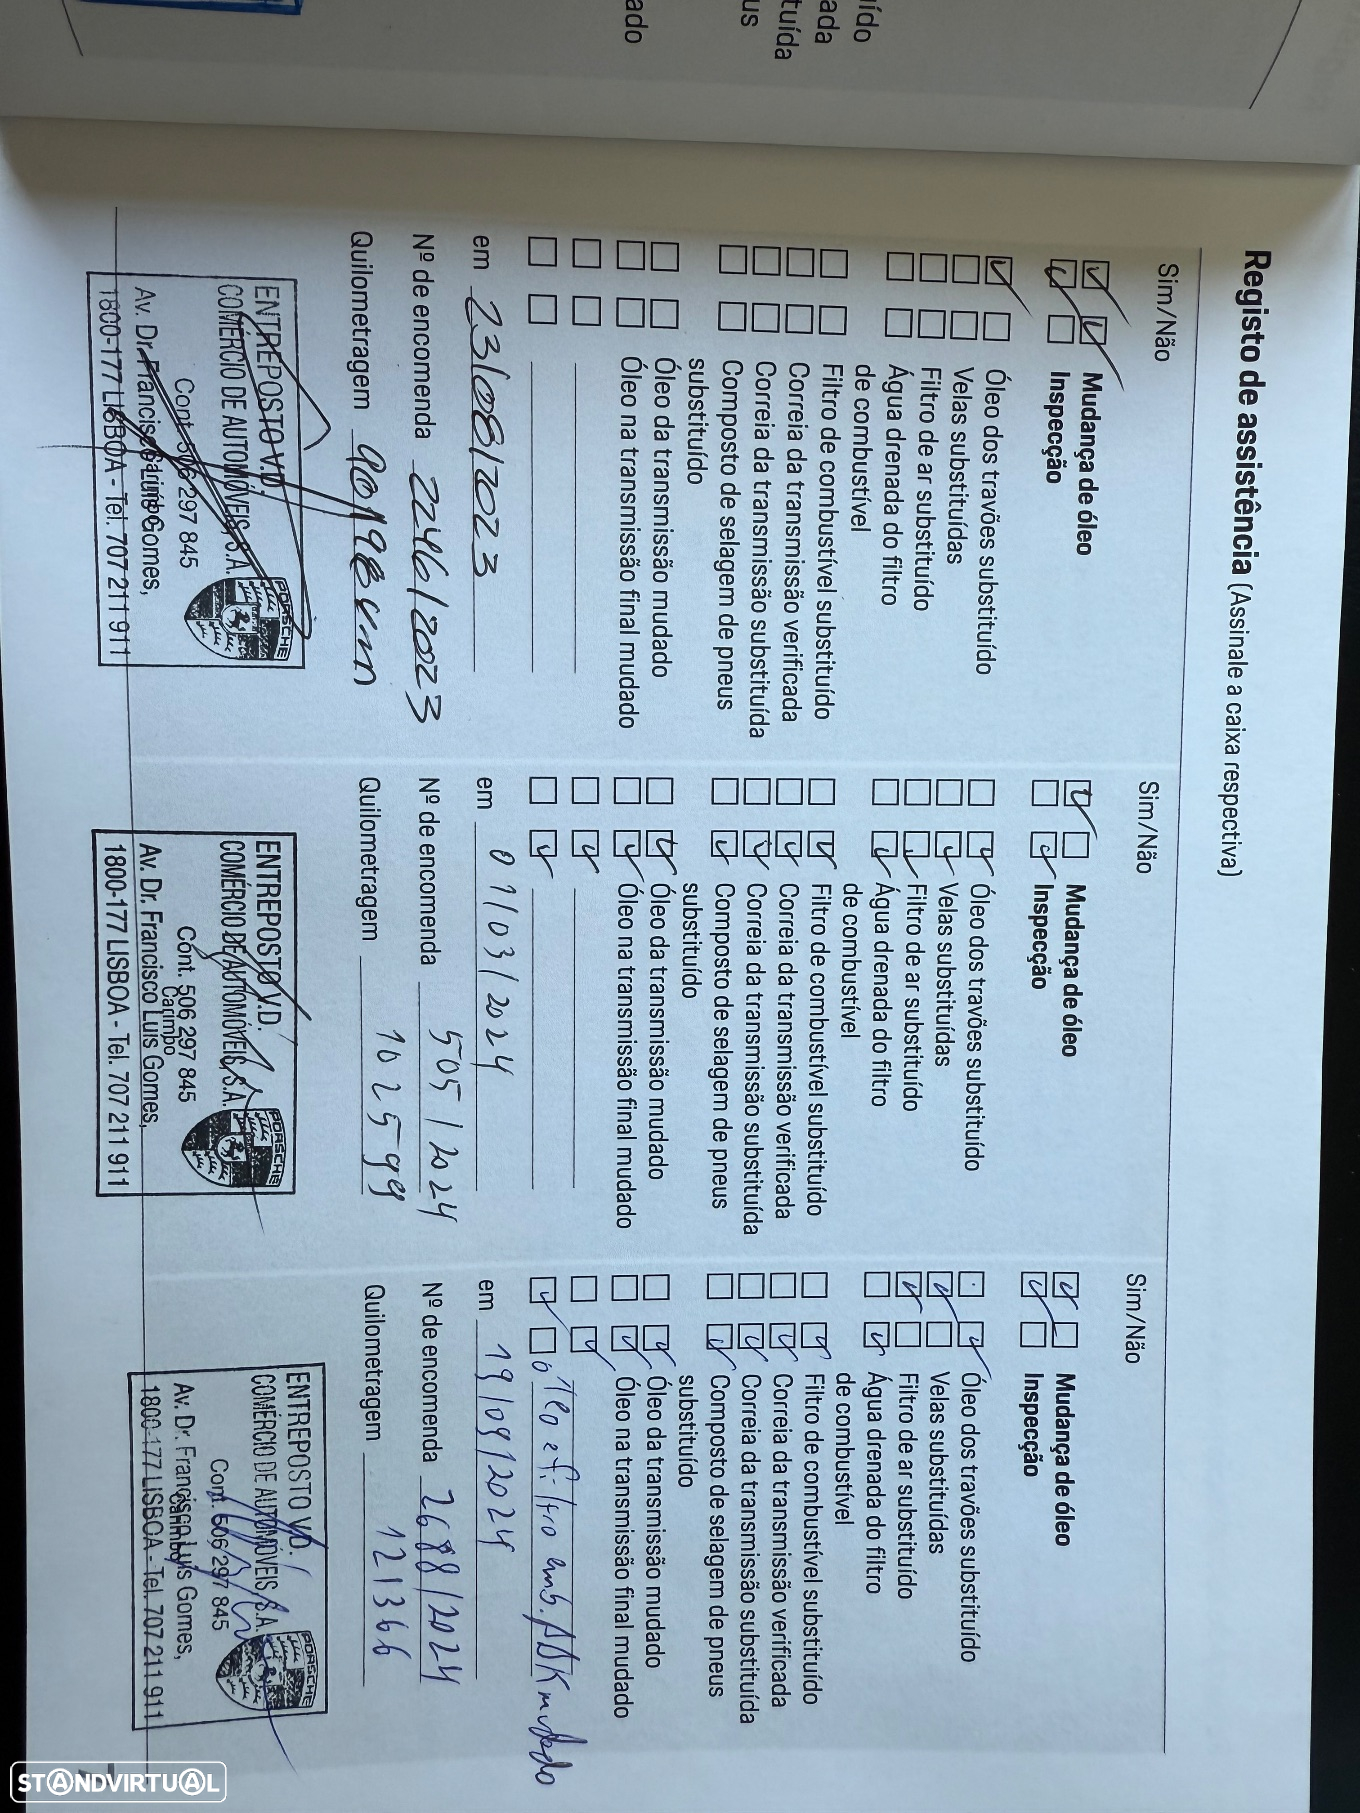 ído
ada
tuída
us
ado
Registo de assistência (Assinale a caixa respectiva)
Sim/Não
Mudança de óleo
Inspecção
Óleo dos travões substituído
Velas substituídas
Filtro de ar substituído
Água drenada do filtro
de combustível
Filtro de combustível substituído
Correia da transmissão verificada
Correia da transmissão substituída
Composto de selagem de pneus
substituído
Óleo da transmissão mudado
Óleo na transmissão final mudado
em 23/08/2023
Nº de encomenda 2246/2023
Quilometragem 90198 km
ENTREPOSTO V.D.
COMÉRCIO DE AUTOMÓVEIS, S.A.
PORSCHE
Cont. 506 297 845
Carimbo
Av. Dr. Francisco Luís Gomes,
1800-177 LISBOA - Tel. 707 211 911
Sim/Não
Mudança de óleo
Inspecção
Óleo dos travões substituído
Velas substituídas
Filtro de ar substituído
Água drenada do filtro
de combustível
Filtro de combustível substituído
Correia da transmissão verificada
Correia da transmissão substituída
Composto de selagem de pneus
substituído
Óleo da transmissão mudado
Óleo na transmissão final mudado
em 01/03/2024
Nº de encomenda 505/2024
Quilometragem 102599
ENTREPOSTO V.D.
COMÉRCIO DE AUTOMÓVEIS, S.A.
PORSCHE
Cont. 506 297 845
Carimbo
Av. Dr. Francisco Luís Gomes,
1800-177 LISBOA - Tel. 707 211 911
Sim/Não
Mudança de óleo
Inspecção
Óleo dos travões substituído
Velas substituídas
Filtro de ar substituído
Água drenada do filtro
de combustível
Filtro de combustível substituído
Correia da transmissão verificada
Correia da transmissão substituída
Composto de selagem de pneus
substituído
Óleo da transmissão mudado
Óleo na transmissão final mudado
óleo e filtro emb. PDK mudado
em 19/09/2024
Nº de encomenda 2688/2024
Quilometragem 121366
ENTREPOSTO V.D.
COMÉRCIO DE AUTOMÓVEIS, S.A.
PORSCHE
Cont. 506 297 845
Carimbo
Av. Dr. Francisco Luís Gomes,
1800-177 LISBOA - Tel. 707 211 911
7
STANDVIRTUAL